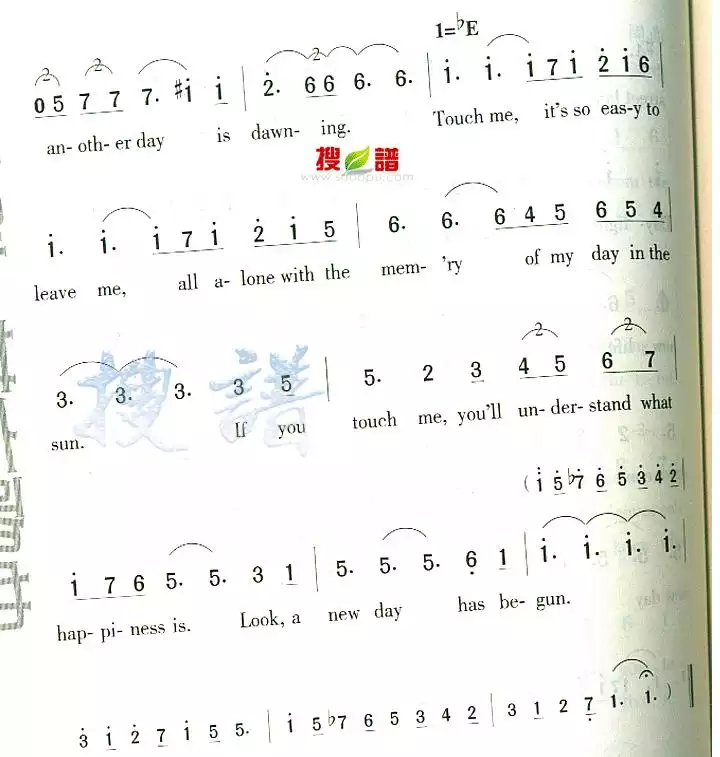 1=♭E
0 5 7 7 7. #i i | 2. 6 6 6. 6. | i. i. i 7 i 2 i 6
an- oth- er day is dawn- ing. Touch me, it's so eas-y to
搜譜
www.sooopu.com
i. i. i 7 i 2 i 5 | 6. 6. 6 4 5 6 5 4
leave me, all a- lone with the mem- 'ry of my day in the
搜譜
3. 3. 3. 3 5 | 5. 2 3 4 5 6 7
sun. If you touch me, you'll un- der- stand what
( i 5 ♭7 6 5 3 4 2 |
i 7 6 5. 5. 3 1 | 5. 5. 5. 6 1 | i. i. i. i.
hap- pi- ness is. Look, a new day has be- gun.
3 i 2 7 i 5 5. | i 5 ♭7 6 5 3 4 2 | 3 1 2 7 1. 1. )